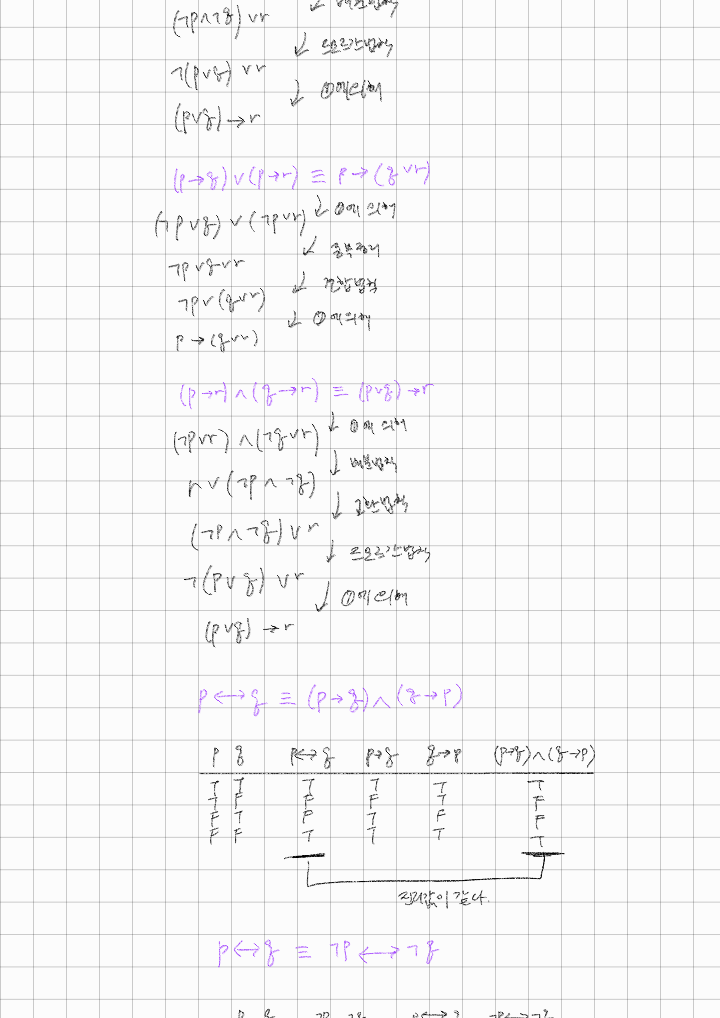 (¬p∧¬q) ∨r
↓ 드모르간법칙
¬(p∨q) ∨r
↓ ①에의해
(p∨q) → r
(p→q) ∨ (p→r) ≡ p → (q ∨r)
(¬p∨q) ∨ (¬p∨r) ↓ ①에 의해
↓ 중복정리
¬p∨q∨r
↓ 결합법칙
¬p∨(q∨r)
↓ ①에의해
p → (q∨r)
(p→r) ∧ (q→r) ≡ (p∨q) → r
(¬p∨r) ∧(¬q∨r) ↓ ①에 의해
↓ 배분법칙
r ∨ (¬p ∧ ¬q)
↓ 교환법칙
(¬p ∧ ¬q) ∨ r
↓ 드모르간법칙
¬(p∨q) ∨r
↓ ①에의해
(p∨q) → r
p ↔ q ≡ (p→q) ∧ (q→p)
p q p↔q p→q q→p (p→q)∧(q→p)
T T T T T T
T F F F T F
F T F T F F
F F T T T T
진리값이 같다.
p ↔ q ≡ ¬p ↔ ¬q